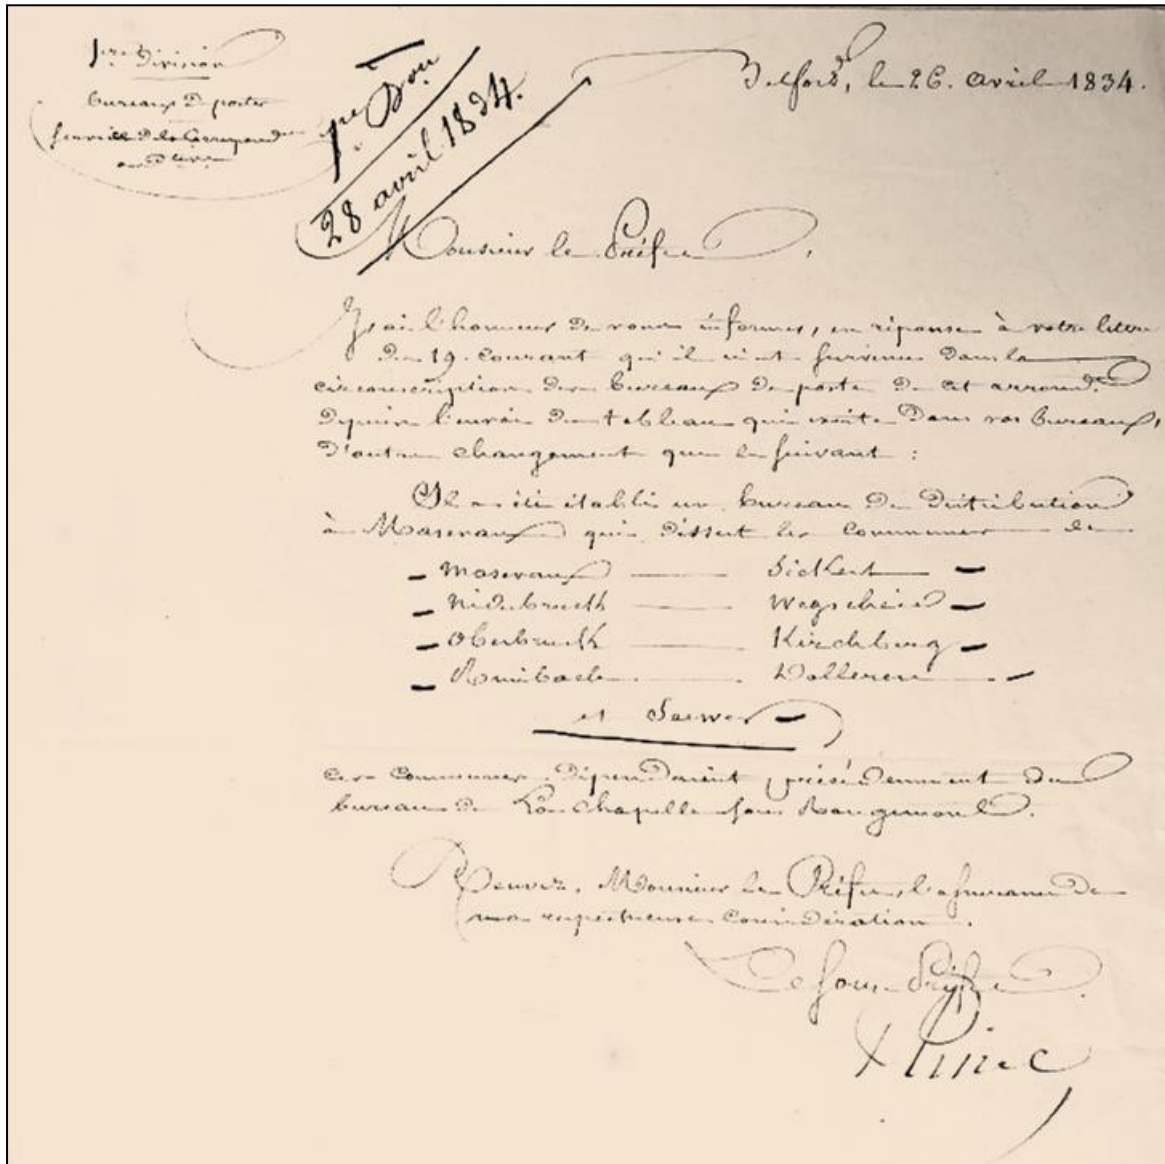 1re Division
bureaux de postes
Service de la Correspond
1re Don
28 avril 1834.
Belfort, le 26. avril 1834.
Monsieur le Préfet,
J'ai l'honneur de vous informer, en réponse à votre lettre
du 19. Courant qu'il n'est survenu dans la
circonscription des bureaux de poste de cet arrondt
depuis l'envoi du tableau qui existe dans vos bureaux,
d'autre changement que le suivant :
Il a été établi un bureau de distribution
à Masevaux qui dessert les communes de
Masevaux — Sickert
Niederbruck — Wegscheid
Oberbruck — Kirchberg
Rimbach — Dolleren
et Sewen
ces communes dépendaient précédemment du
bureau de La Chapelle sous Rougemont.
Recevez, Monsieur le Préfet, l'assurance de
ma respectueuse considération.
Le Sous-Préfet